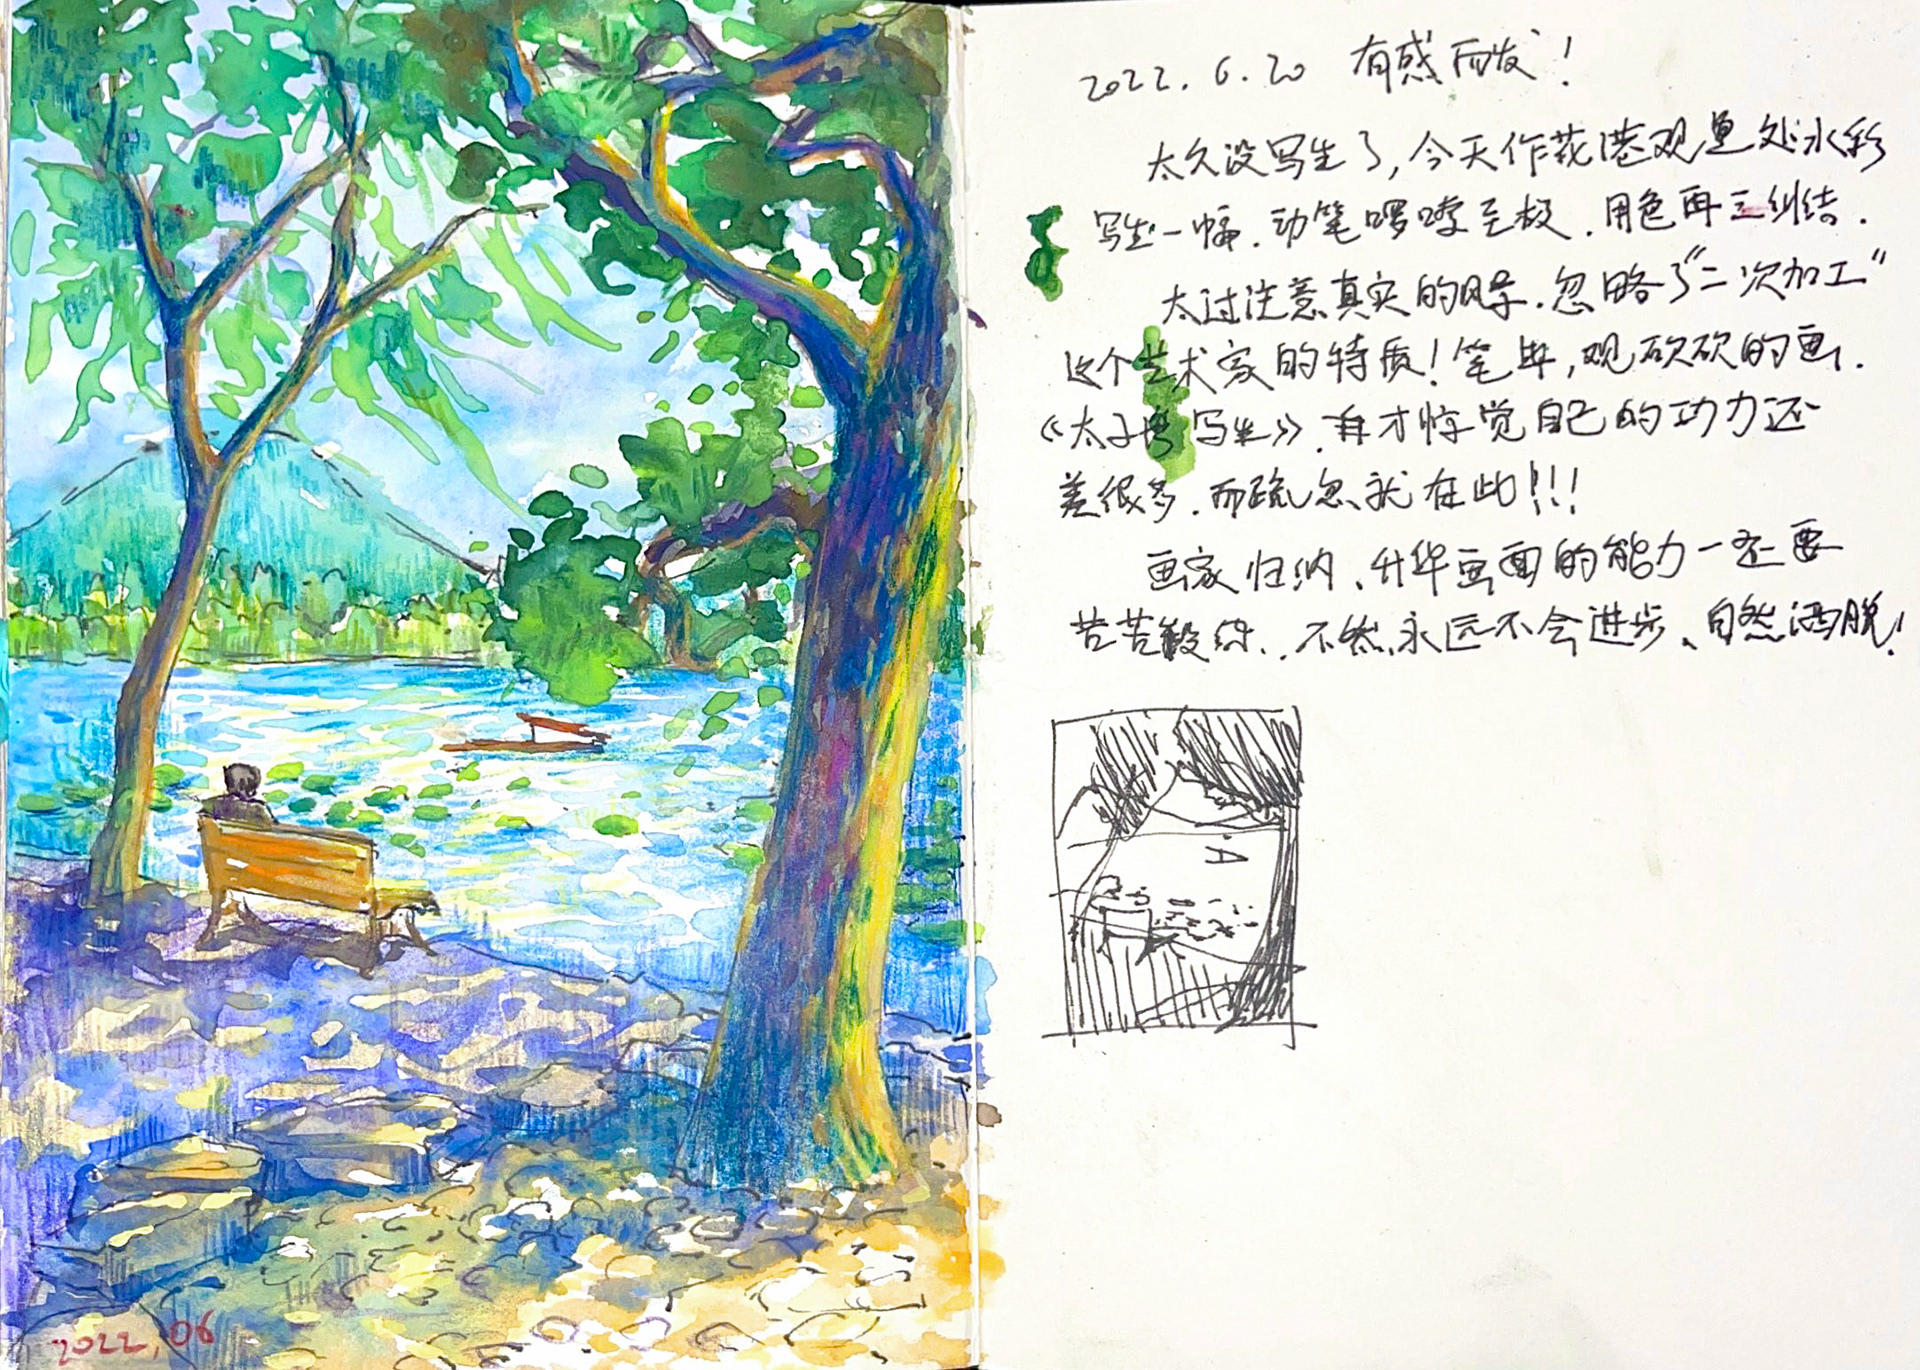 2022.6.20 有感而发！
太久没写生了，今天作花港观鱼处水彩
写生一幅．动笔啰嗦至极．用色再三纠结．
太过注意真实的风景．忽略了“二次加工”
这个艺术家的特质！笔毕，观砍砍的画．
《太子湾写生》．再才惊觉自己的功力还
差很多．而疏忽就在此！！！
画家归纳、升华画面的能力一定要
苦苦锻炼．．不然永远不会进步、自然洒脱！
2022.06